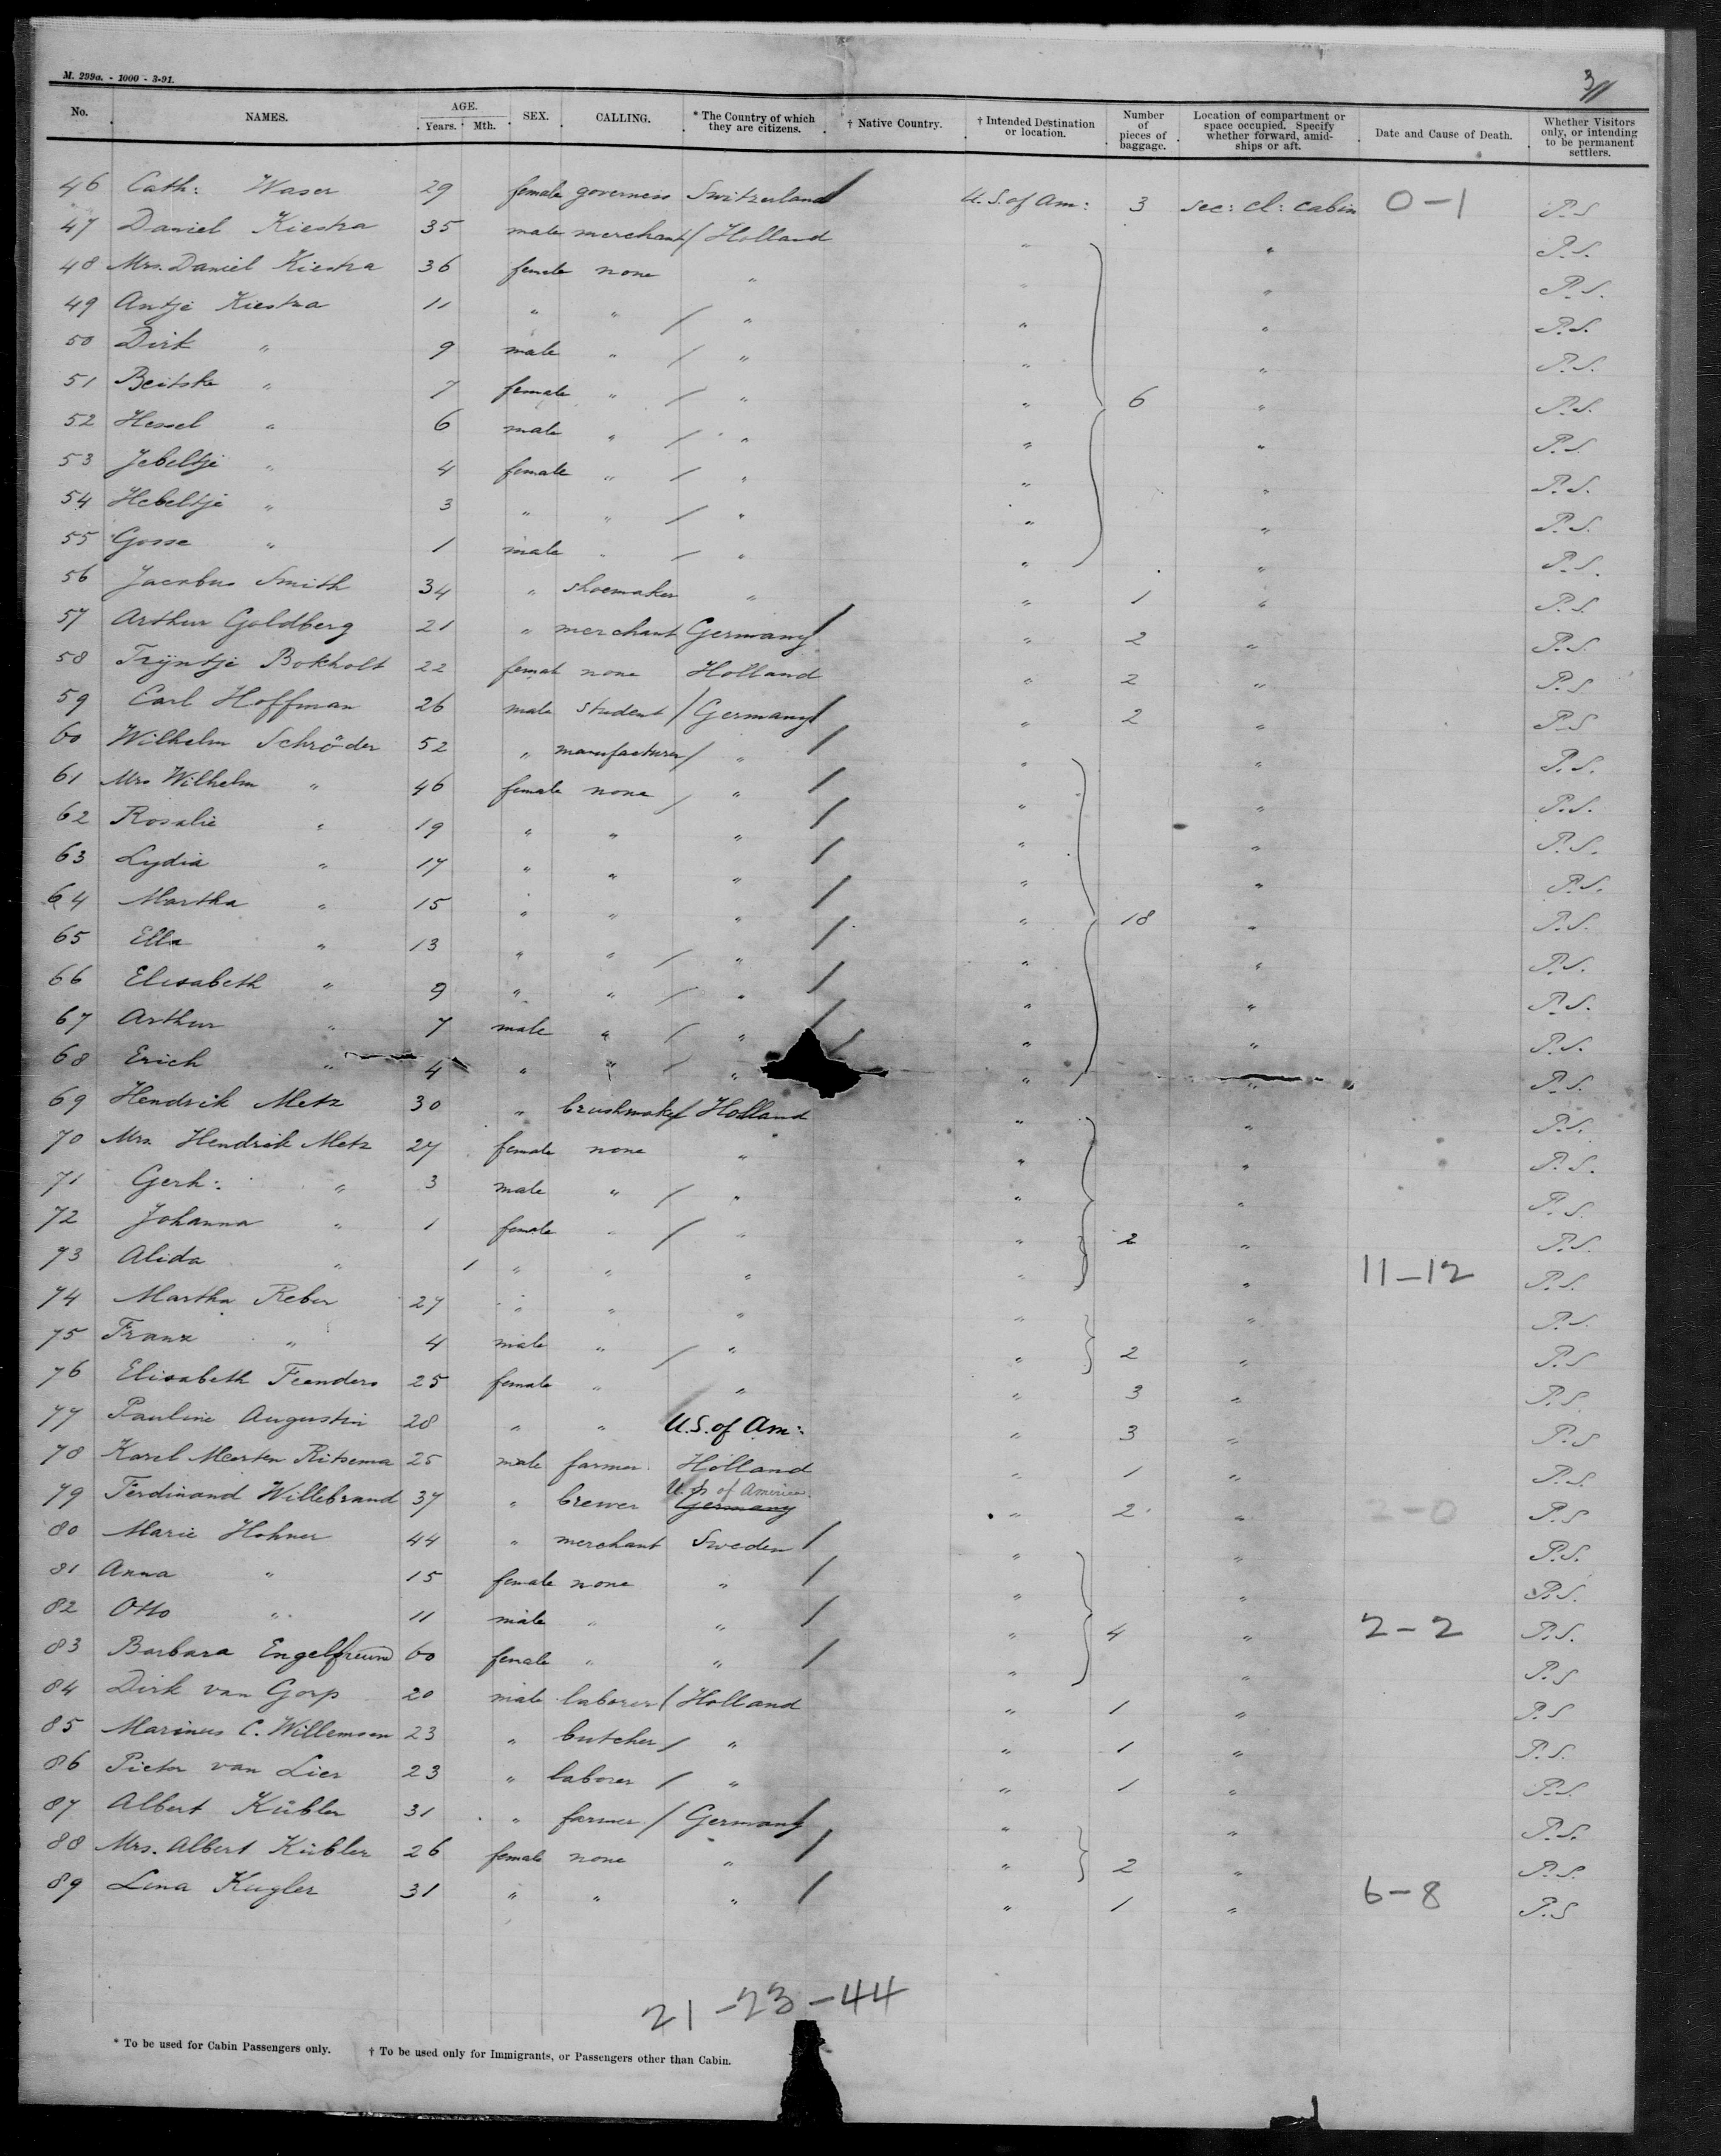 M. 299a. - 1000 - 3-91.
3
No. NAMES. AGE. Years. Mth. SEX. CALLING. * The Country of which they are citizens. † Native Country. † Intended Destination or location. Number of pieces of baggage. Location of compartment or space occupied. Specify whether forward, amidships or aft. Date and Cause of Death. Whether Visitors only, or intending to be permanent settlers.
46 Cath: Waser 29 female governess Switzerland / U. S. of Am: 3 sec: cl: cabin 0-1 P.S
47 Daniel Kiestra 35 male merchant / Holland " " P.S.
48 Mrs. Daniel Kiestra 36 female none " " " P.S.
49 Antje Kiestra 11 " " / " " " P.S.
50 Dirk " 9 male " / " " " P.S.
51 Beitske " 7 female " / " " 6 " P.S.
52 Hessel " 6 male " / " " " P.S.
53 Jebeltje " 4 female " / " " " P.S.
54 Hebeltje " 3 " " / " " " P.S.
55 Gosse " 1 male " / " " " P.S.
56 Jacobus Smith 34 " shoemaker " " 1 " P.S
57 Arthur Goldberg 21 " merchant Germany / " 2 " P.S.
58 Trijntje Bokholt 22 femal none Holland " 2 " P.S
59 Carl Hoffman 26 male student / Germany / " 2 " P.S
60 Wilhelm Schröder 52 " manufacturer / " / " " P.S.
61 Mrs Wilhelm " 46 female none / " / " " P.S.
62 Rosalie " 19 " " " / " " P.S.
63 Lydia " 17 " " " / " " P.S.
64 Martha " 15 " " " / " 18 " P.S.
65 Ella " 13 " " / " / " " P.S.
66 Elisabeth " 9 " " / " / " " P.S.
67 Arthur " 7 male " / " / " " P.S.
68 Erich " 4 " " / " / " " P.S.
69 Hendrik Metz 30 " brushmaker / Holland " " P.S.
70 Mrs. Hendrik Metz 27 female none " " " P.S.
71 Gerh: " 3 male " / " " " P.S.
72 Johanna " 1 female " / " " 2 " P.S.
73 Alida " 1 " " " " " 11-12 P.S.
74 Martha Reber 27 " " " " " P.S.
75 Franz " 4 male " / " " 2 " P.S
76 Elisabeth Feenders 25 female " " " 3 " P.S.
77 Pauline Augustin 28 " " U.S. of Am: " 3 " P.S
78 Karel Merten Ritsema 25 male farmer Holland " 1 " P.S.
79 Ferdinand Willebrand 37 " brewer U.S. of America. Germany " 2 " P.S
80 Marie Hohner 44 " merchant Sweden / " " P.S.
81 Anna " 15 female none " / " " P.S.
82 Otto " 11 male " " / " 4 " 2-2 P.S.
83 Barbara Engelfreund 60 female " " / " " P.S
84 Dirk van Gorp 20 male laborer / Holland " 1 " P.S
85 Marinus C. Willemsen 23 " butcher / " " 1 " P.S.
86 Pieter van Lier 23 " laborer / " " 1 " P.S.
87 Albert Kübler 31 " farmer / Germany / " " P.S.
88 Mrs. Albert Kübler 26 female none " / " 2 " P.S.
89 Lina Kugler 31 " " " / " 1 " 6-8 P.S
21-23-44
* To be used for Cabin Passengers only. † To be used only for Immigrants, or Passengers other than Cabin.